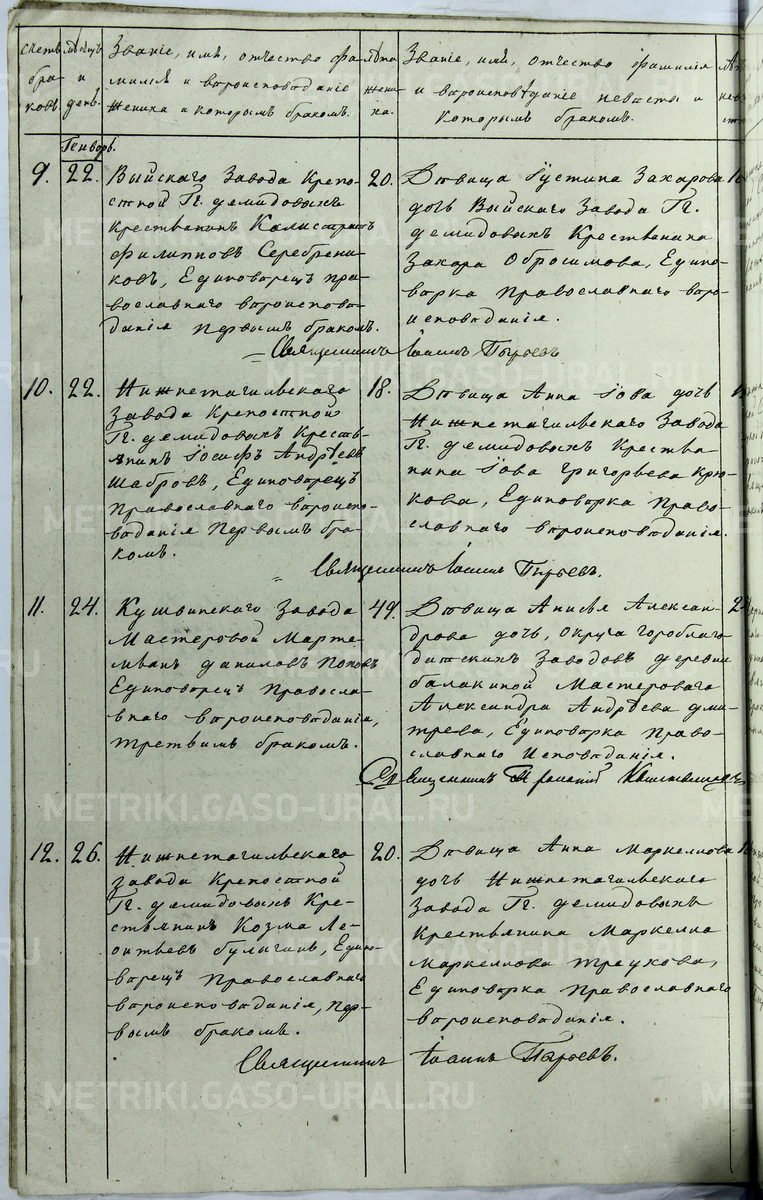 Счетъ браковъ.
Мѣсяцъ и день.
Званіе, имя, отчество фа-
милія и вѣроисповѣданіе
жениха и которымъ бракомъ.
Лѣта жени-
ха.
Званіе, имя, отчество фамилія
и вѣроисповѣданіе невѣсты и
которымъ бракомъ.
Генворь.
9. 22.
Выйскаго Завода Крепо-
стной Гг. Демидовыхъ
Крестьянинъ Калистратъ
Филипповъ Серебрени-
ковъ, Единоверецъ пра-
вославнаго вѣроисповѣ-
данія первымъ бракомъ.
20.
Дѣвица Іустина Захарова
дочь Выйскаго Завода Гг.
Демидовыхъ Крестьянина
Захара Обросимова, Едино-
верка Православнаго вѣро-
исповѣданія.
Священникъ Іоаннъ Пырьевъ
10. 22.
Нижнетагильскаго
Завода Крепостной
Гг. Демидовыхъ Кресть-
янинъ Іосифъ Андрѣевъ
Шабровъ, Единоверецъ
Православнаго вѣроиспо-
вѣданія Первымъ бра-
комъ.
18.
Дѣвица Анна Іова дочь
Нижнетагильскаго Завода
Гг. Демидовыхъ Крестья-
нина Іова Григорьева Крю-
кова, Единоверка Право-
славнаго вѣроисповѣданія.
Священникъ Іоаннъ Пырьевъ.
11. 24.
Кушвинскаго Завода
Мастеровой Марте-
мianъ Даниловъ Поповъ
Единоверецъ Правосла-
внаго вѣроисповѣданія,
третьимъ бракомъ.
49.
Дѣвица Анисья Алексан-
дрова дочь, округа Гороблаго-
датскихъ Заводовъ деревни
Балакиной Мастероваго
Александра Андрѣева Дми-
трева, Единоверка Право-
славнаго Исповѣданія.
Священникъ
12. 26.
Нижнетагильскаго
Завода Крепостной
Гг. Демидовыхъ Кре-
стьянинъ Козма Ле-
онтьевъ Булыгинъ, Едино-
верецъ Православнаго
вѣроисповѣданія, пер-
вымъ бракомъ.
20.
Дѣвица Анна Маркеллова
дочь Нижнетагильскаго
Завода Гг. Демидовыхъ
Крестьянина Маркелла
Маркеллова Треухова,
Единоверка Православнаго
вѣроисповѣданія.
Священникъ Іоаннъ Пырьевъ.
METRIKI.GASO-URAL.RU